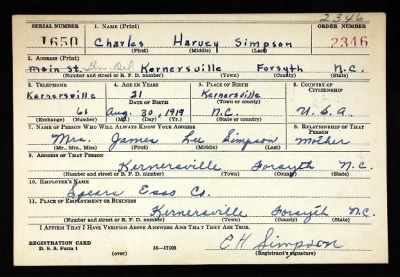 2346
SERIAL NUMBER 1. NAME (Print) ORDER NUMBER
1650 Charles Harvey Simpson 2346
(First) (Middle) (Last)
2. ADDRESS (Print)
Main St. Gen. Del. Kernersville Forsyth N.C.
(Number and street or R. F. D. number) (Town) (County) (State)
3. TELEPHONE 4. AGE IN YEARS 5. PLACE OF BIRTH 6. COUNTRY OF CITIZENSHIP
Kernersville 21 Kernersville
DATE OF BIRTH (Town or county)
61 Aug. 30, 1919 N.C. U.S.A.
(Exchange) (Number) (Mo.) (Day) (Yr.) (State or country)
7. NAME OF PERSON WHO WILL ALWAYS KNOW YOUR ADDRESS 8. RELATIONSHIP OF THAT PERSON
Mrs. James Lee Simpson Mother
(Mr., Mrs., Miss) (First) (Middle) (Last)
9. ADDRESS OF THAT PERSON
Kernersville Forsyth N.C.
(Number and street or R. F. D. number) (Town) (County) (State)
10. EMPLOYER'S NAME
Spears Esso Co.
11. PLACE OF EMPLOYMENT OR BUSINESS
Kernersville Forsyth N.C.
(Number and street or R. F. D. number) (Town) (County) (State)
I AFFIRM THAT I HAVE VERIFIED ABOVE ANSWERS AND THAT THEY ARE TRUE.
REGISTRATION CARD
D. S. S. Form 1 16-17105 C H Simpson
(over) (Registrant's signature)